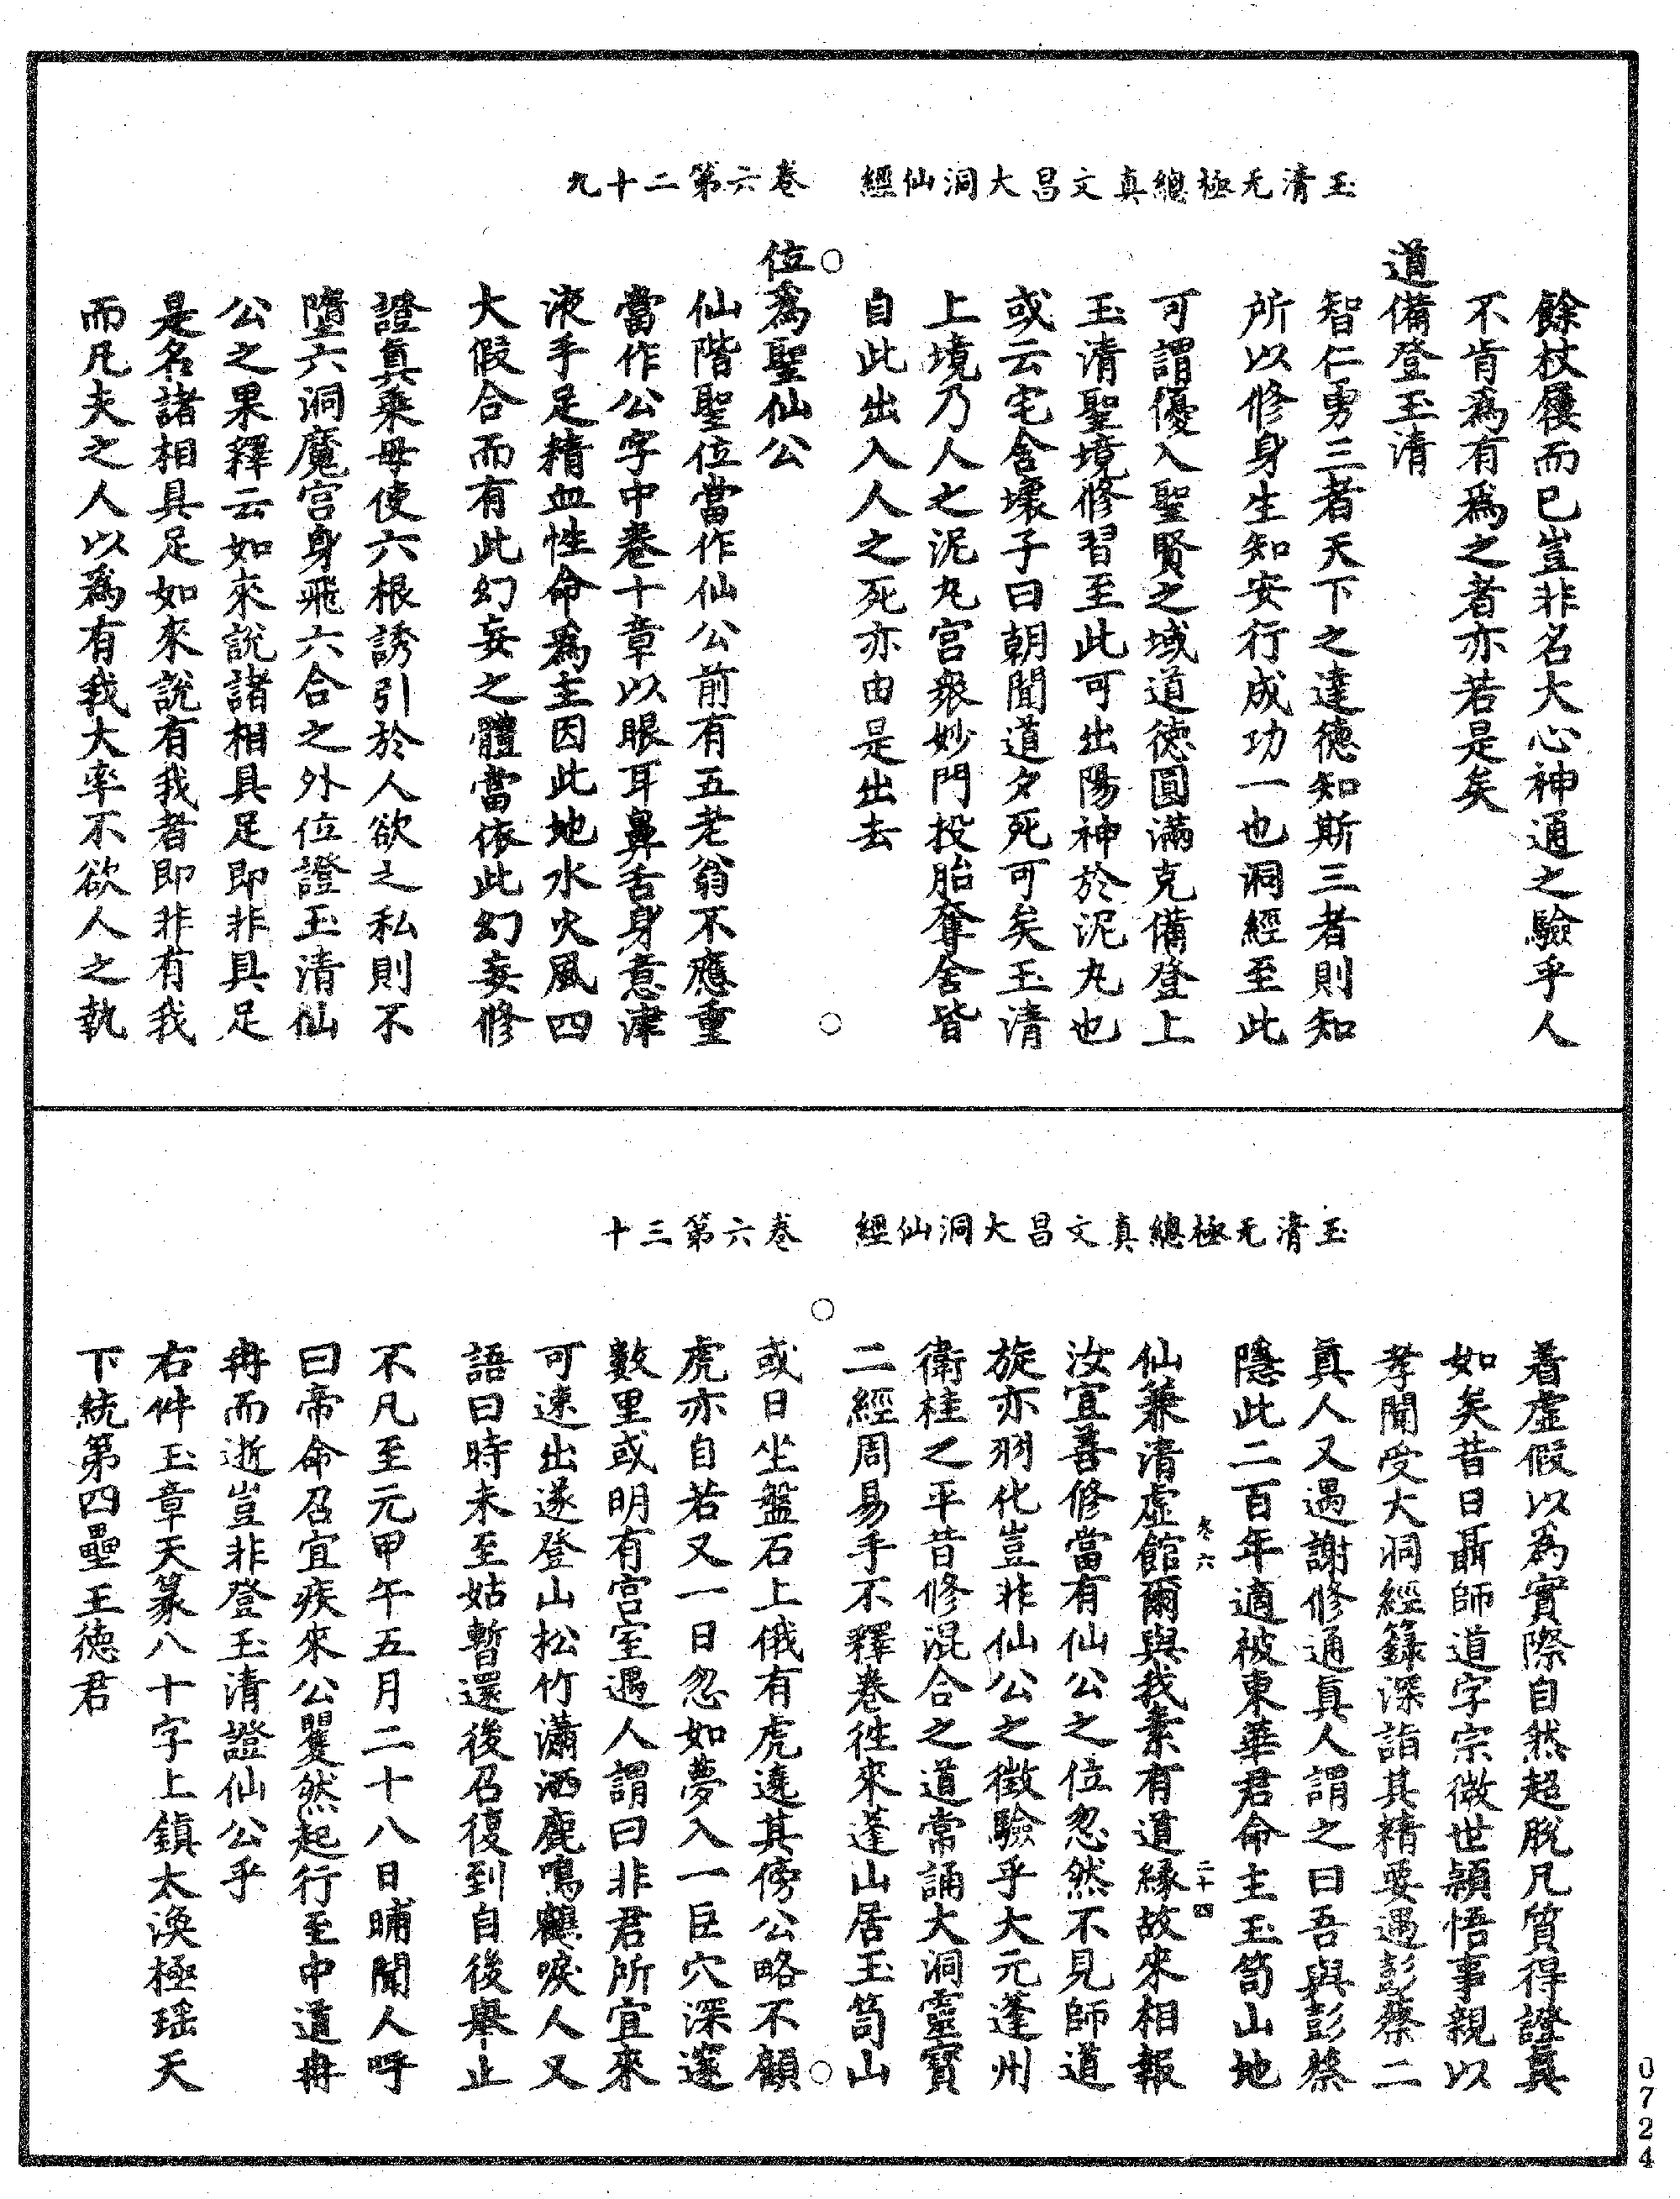 玉清无極總真文昌大洞仙經 卷六第二十九
餘杖屨而已豈非名大心神通之驗乎人
不肯爲有爲之者亦若是矣
道備登玉清
智仁勇三者天下之達德知斯三者則知
所以修身生知安行成功一也洞經至此
可謂優入聖賢之域道德圓滿克備登上
玉清聖境修習至此可出陽神於泥丸也
或云宅舍壞子曰朝聞道夕死可矣玉清
上境乃人之泥丸宮衆妙門投胎奪舍皆
自此出入人之死亦由是出去
位爲聖仙公
仙階聖位當作仙公前有五老翁不應重
當作公字中卷十章以眼耳鼻舌身意津
液手足精血性命爲主因此地水火風四
大假合而有此幻妄之體當依此幻妄修
證真乘毋使六根誘引於人欲之私則不
墮六洞魔宮身飛六合之外位證玉清仙
公之果釋云如來說諸相具足即非具足
是名諸相具足如來說有我者即非有我
而凡夫之人以爲有我大率不欲人之執
玉清无極總真文昌大洞仙經 卷六第三十
着虛假以爲實際自然超脫凡質得證真
如矣昔日聶師道字宗微世穎悟事親以
孝聞受大洞經籙深詣其精要遇彭蔡二
真人又遇謝修通真人謂之曰吾與彭蔡
隱此二百年適被東華君命主玉笥山地
卷六 二十四
仙兼清虛館爾與我素有道緣故來相報
汝宜善修當有仙公之位忽然不見師道
旋亦羽化豈非仙公之徵驗乎大元蓬州
衛桂之平昔修混合之道常誦大洞靈寶
二經周易手不釋卷徃來蓬山居玉笥山
或日坐盤石上俄有虎遶其傍公略不顧
虎亦自若又一日忽如夢入一巨穴深邃
數里或明有宮室遇人謂曰非君所宜來
可速出遂登山松竹瀟洒鹿鳴鶴唳人又
語曰時未至姑暫還後召復到自後舉止
不凡至元甲午五月二十八日晡聞人呼
曰帝命召宜疾來公矍然起行至中道冉
冉而逝豈非登玉清證仙公乎
右件玉章天篆八十字上鎮太渙極瑤天
下統第四壘王德君
0724